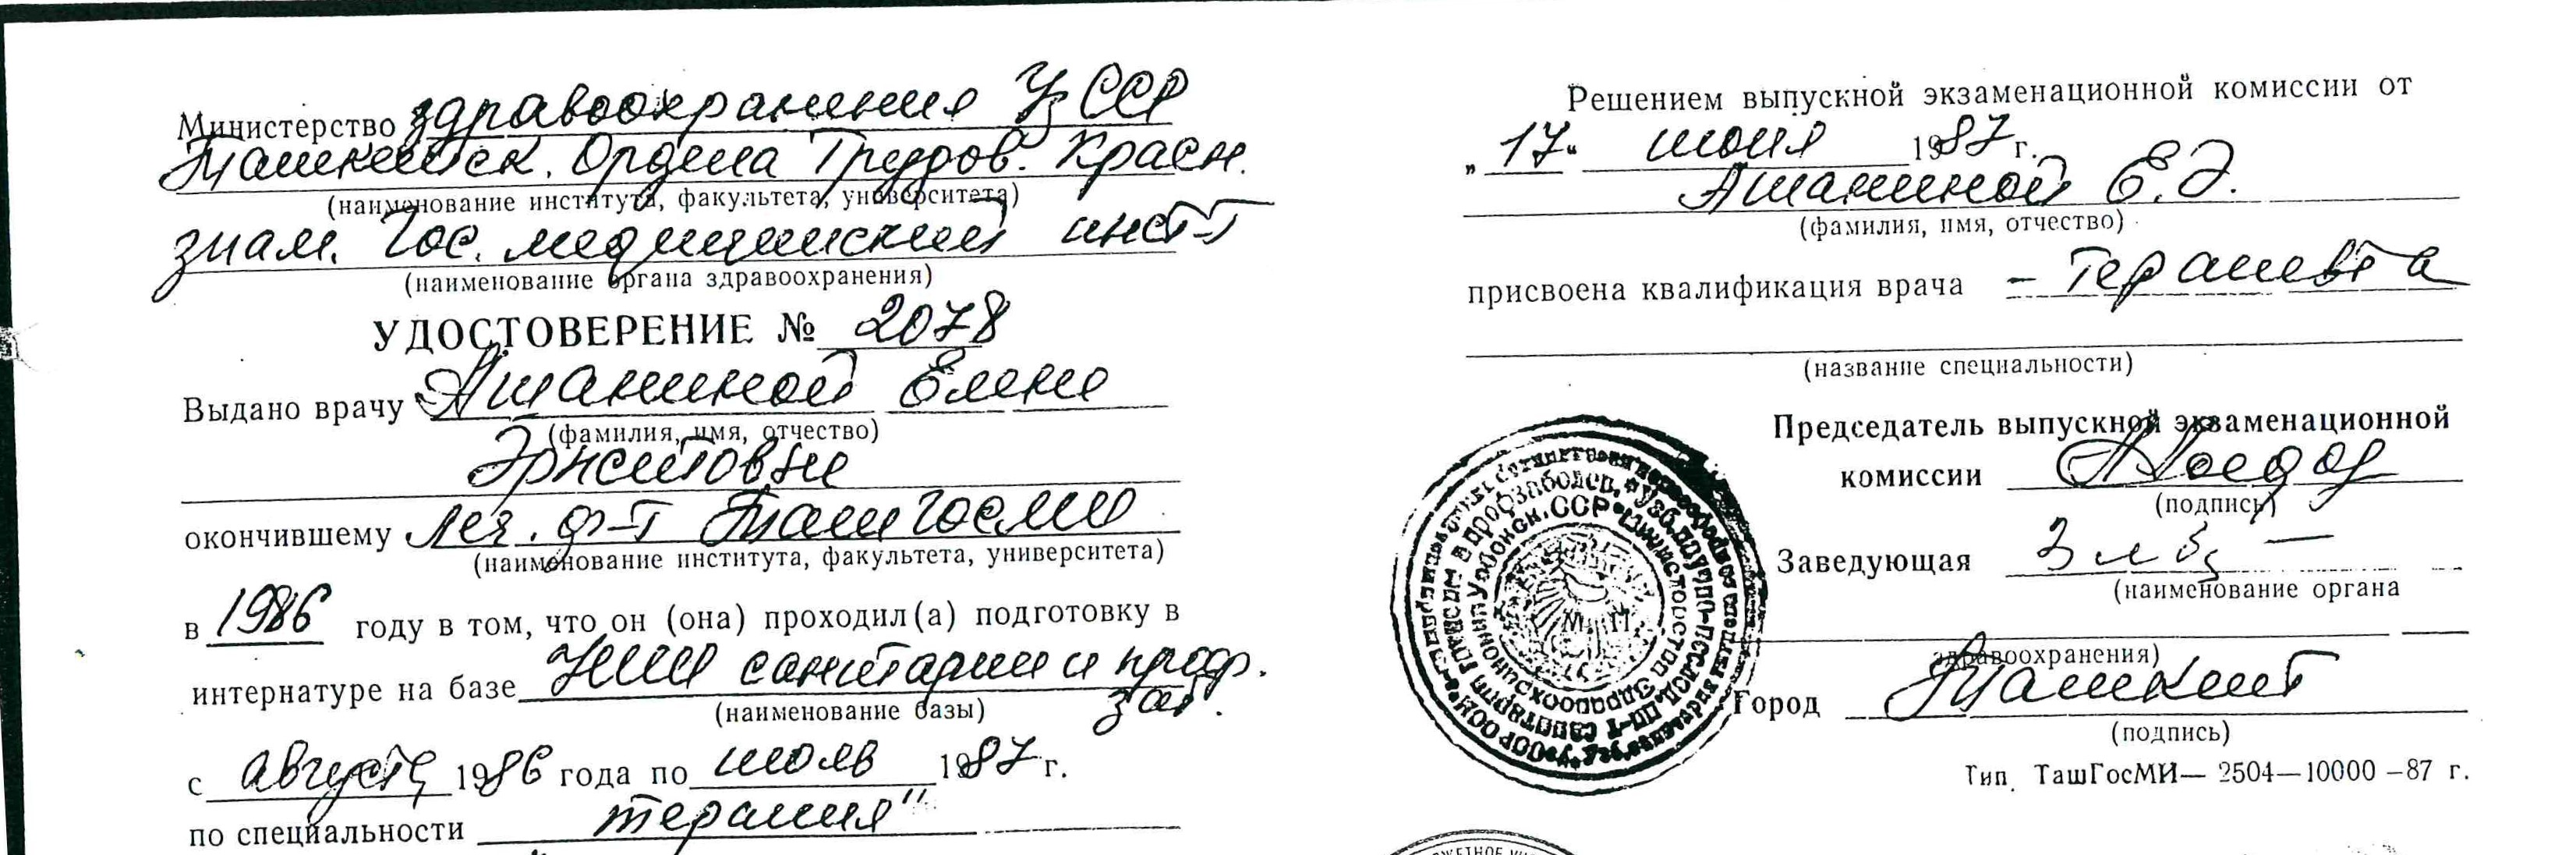 Министерство здравоохранения УзССР
Ташкентск. Ордена Трудов. Красн.
(наименование института, факультета, университета)
знам. Гос. медицинский инст-т
(наименование органа здравоохранения)
УДОСТОВЕРЕНИЕ № 2078
Выдано врачу Ашаниной Елене
(фамилия, имя, отчество)
окончившему леч. ф-т ТашГосМИ
(наименование института, факультета, университета)
в 1986 году в том, что он (она) проходил(а) подготовку в
интернатуре на базе НИИ санитарии и проф.
заб.
(наименование базы)
с августа 1986 года по июль 1987 г.
по специальности терапия"
Решением выпускной экзаменационной комиссии от
„17“ июня 1987 г.
Ашаниной Е.Э.
(фамилия, имя, отчество)
присвоена квалификация врача – терапевта
(название специальности)
Председатель выпускной экзаменационной
комиссии
(подпись)
Заведующая
(наименование органа
здравоохранения)
Город Ташкент
(подпись)
М. П.
Тип. ТашГосМИ— 2504—10000 –87 г.